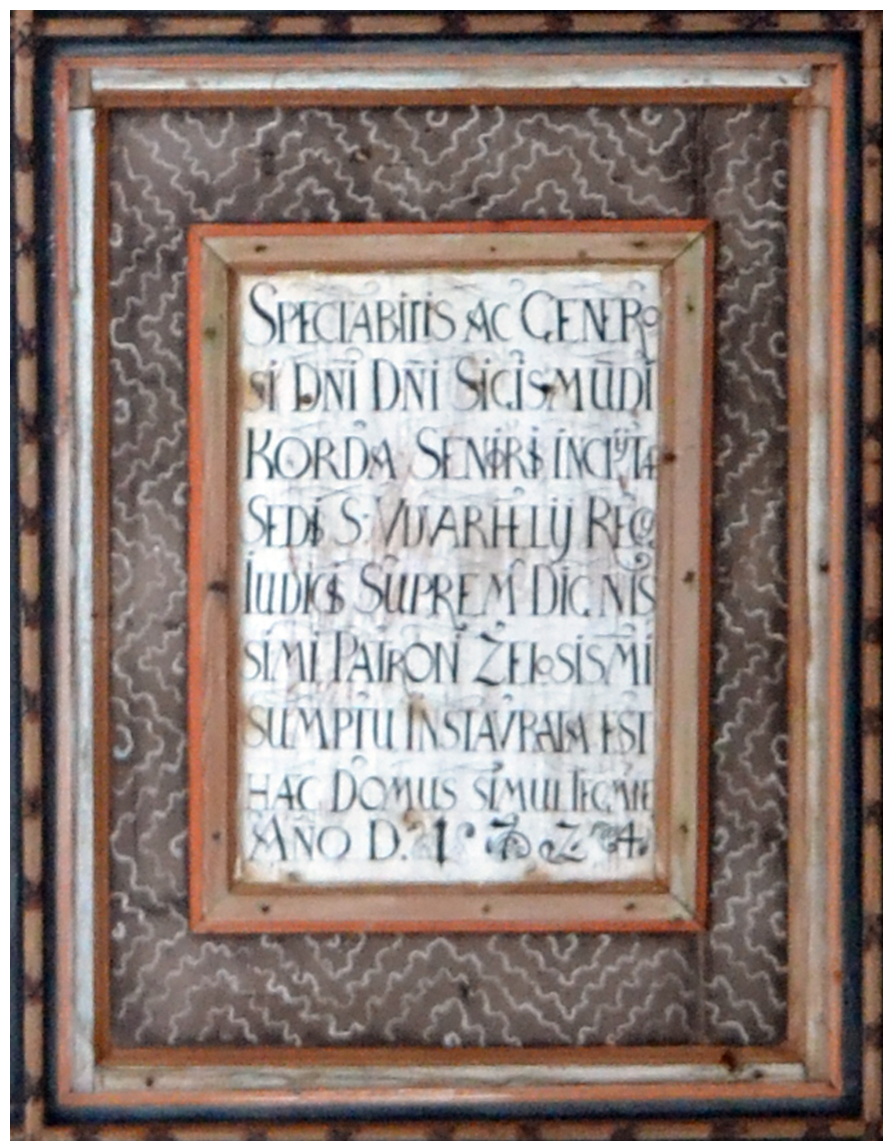 SPECTABILIS AC GENERO
SI DNI DNI SIGISMUDI
KORDA SENIORIS INCLYTÆ
SEDIS S: UDVARHELIJ REGIJ
IUDICIS SUPREM DIGNIS
SIMI PATRON ZELOSISMI
SUMPTU INSTAVRATA EST
HAC DOMUS SIMUL TEGMIE
AÑO D. 1724.